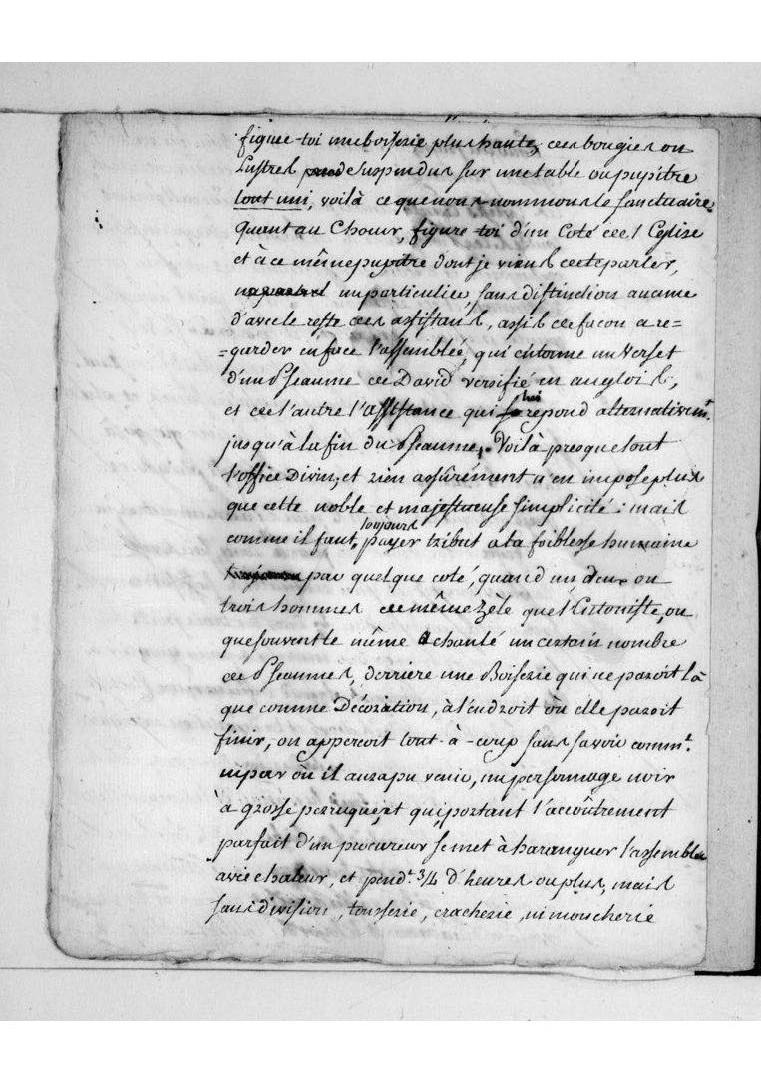 figure-toi une boiserie plus haute, des bougies ou
Lustres suspendus sur une table ou pupitre
tout uni, voilà ce que nous nommons le sanctuaire.
Quant au Chœur, figure-toi d'un Coté de l'Eglise
et à ce même pupitre dont je viens de te parler,
un particulier, sans distinction aucune
d'avec le reste des assistans, assis de façon a re=
=garder en face l'assemblée, qui entonne un Verset
d'un Pseaume de David versifié en anglois,
et de l'autre l'Assistance qui lui répond alternativemt.
jusqu'à la fin du Pseaume. Voilà presque tout
l'office Divin, et rien assûrément n'en impose plus
que cette noble et majestueuse simplicité : mais
comme il faut toujours payer tribut a la foiblesse humaine
par quelque coté, quand un, deux ou
trois hommes de même zèle que l'Antoniste, ou
que souvent le même a chanté un certain nombre
de Pseaumes, derriere une Boiserie qui ne paroit là
que comme Décoration, à l'endroit où elle paroit
finir, on apperçoit tout-à-coup sans savoir commt.
ni par où il aura pu venir, un personnage noir
à grosse perruque, et qui portant l'accoûtrement
parfait d'un procureur se met à haranguer l'assemblée
avec chaleur, et pendt. 3/4 d'heures ou plus, mais
sans division, tousserie, cracherie, ni moucherie